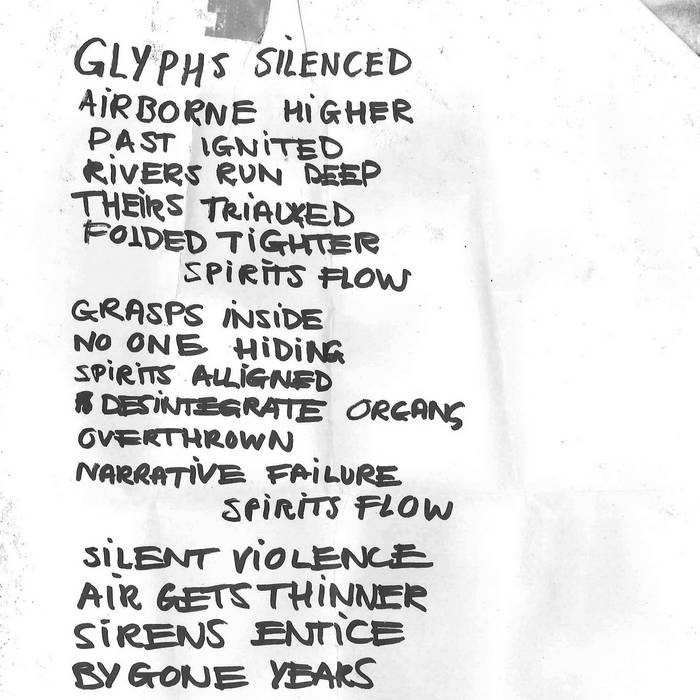 GLYPHS SILENCED
AIRBORNE HIGHER
PAST IGNITED
RIVERS RUN DEEP
THEIRS
FOLDED TIGHTER
SPIRITS FLOW
GRASPS INSIDE
NO ONE HIDING
SPIRITS ALLIGNED
DESINTEGRATE ORGANS
OVERTHROWN
NARRATIVE FAILURE
SPIRITS FLOW
SILENT VIOLENCE
AIR GETS THINNER
SIRENS ENTICE
BY GONE YEARS